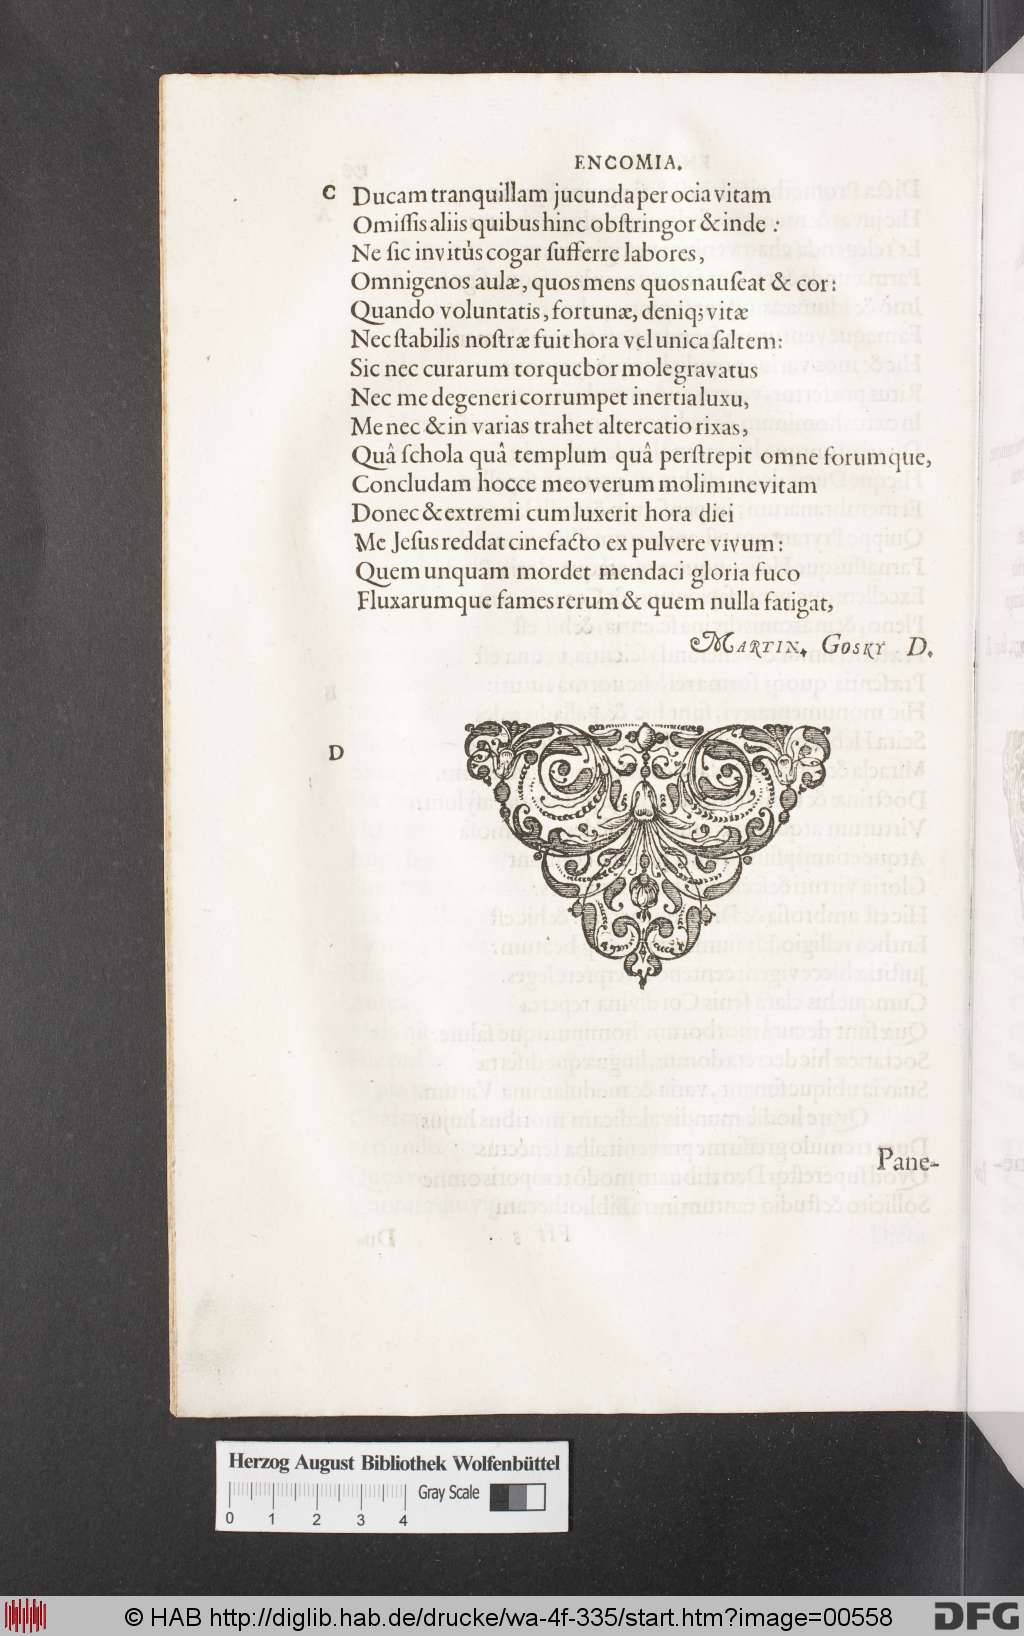 ENCOMIA.
C Ducam tranquillam jucunda per ocia vitam
Omiſſis aliis quibus hinc obſtringor & inde :
Ne ſic invitùs cogar ſufferre labores,
Omnigenos aulæ, quos mens quos nauſeat & cor:
Quando voluntatis, fortunæ, deniq; vitæ
Nec ſtabilis noſtræ fuit hora vel unica ſaltem:
Sic nec curarum torquebor mole gravatus
Nec me degeneri corrumpet inertia luxu,
Me nec & in varias trahet altercatio rixas,
Quâ ſchola quâ templum quâ perſtrepit omne forumque,
Concludam hocce meo verum molimine vitam
Donec & extremi cum luxerit hora diei
Me Jeſus reddat cinefacto ex pulvere vivum:
Quem unquam mordet mendaci gloria fuco
Fluxarumque fames rerum & quem nulla fatigat,
MARTIN. GOSKY D.
D
Pane-
Herzog August Bibliothek Wolfenbüttel
Gray Scale
0 1 2 3 4
© HAB http://diglib.hab.de/drucke/wa-4f-335/start.htm?image=00558
DFG